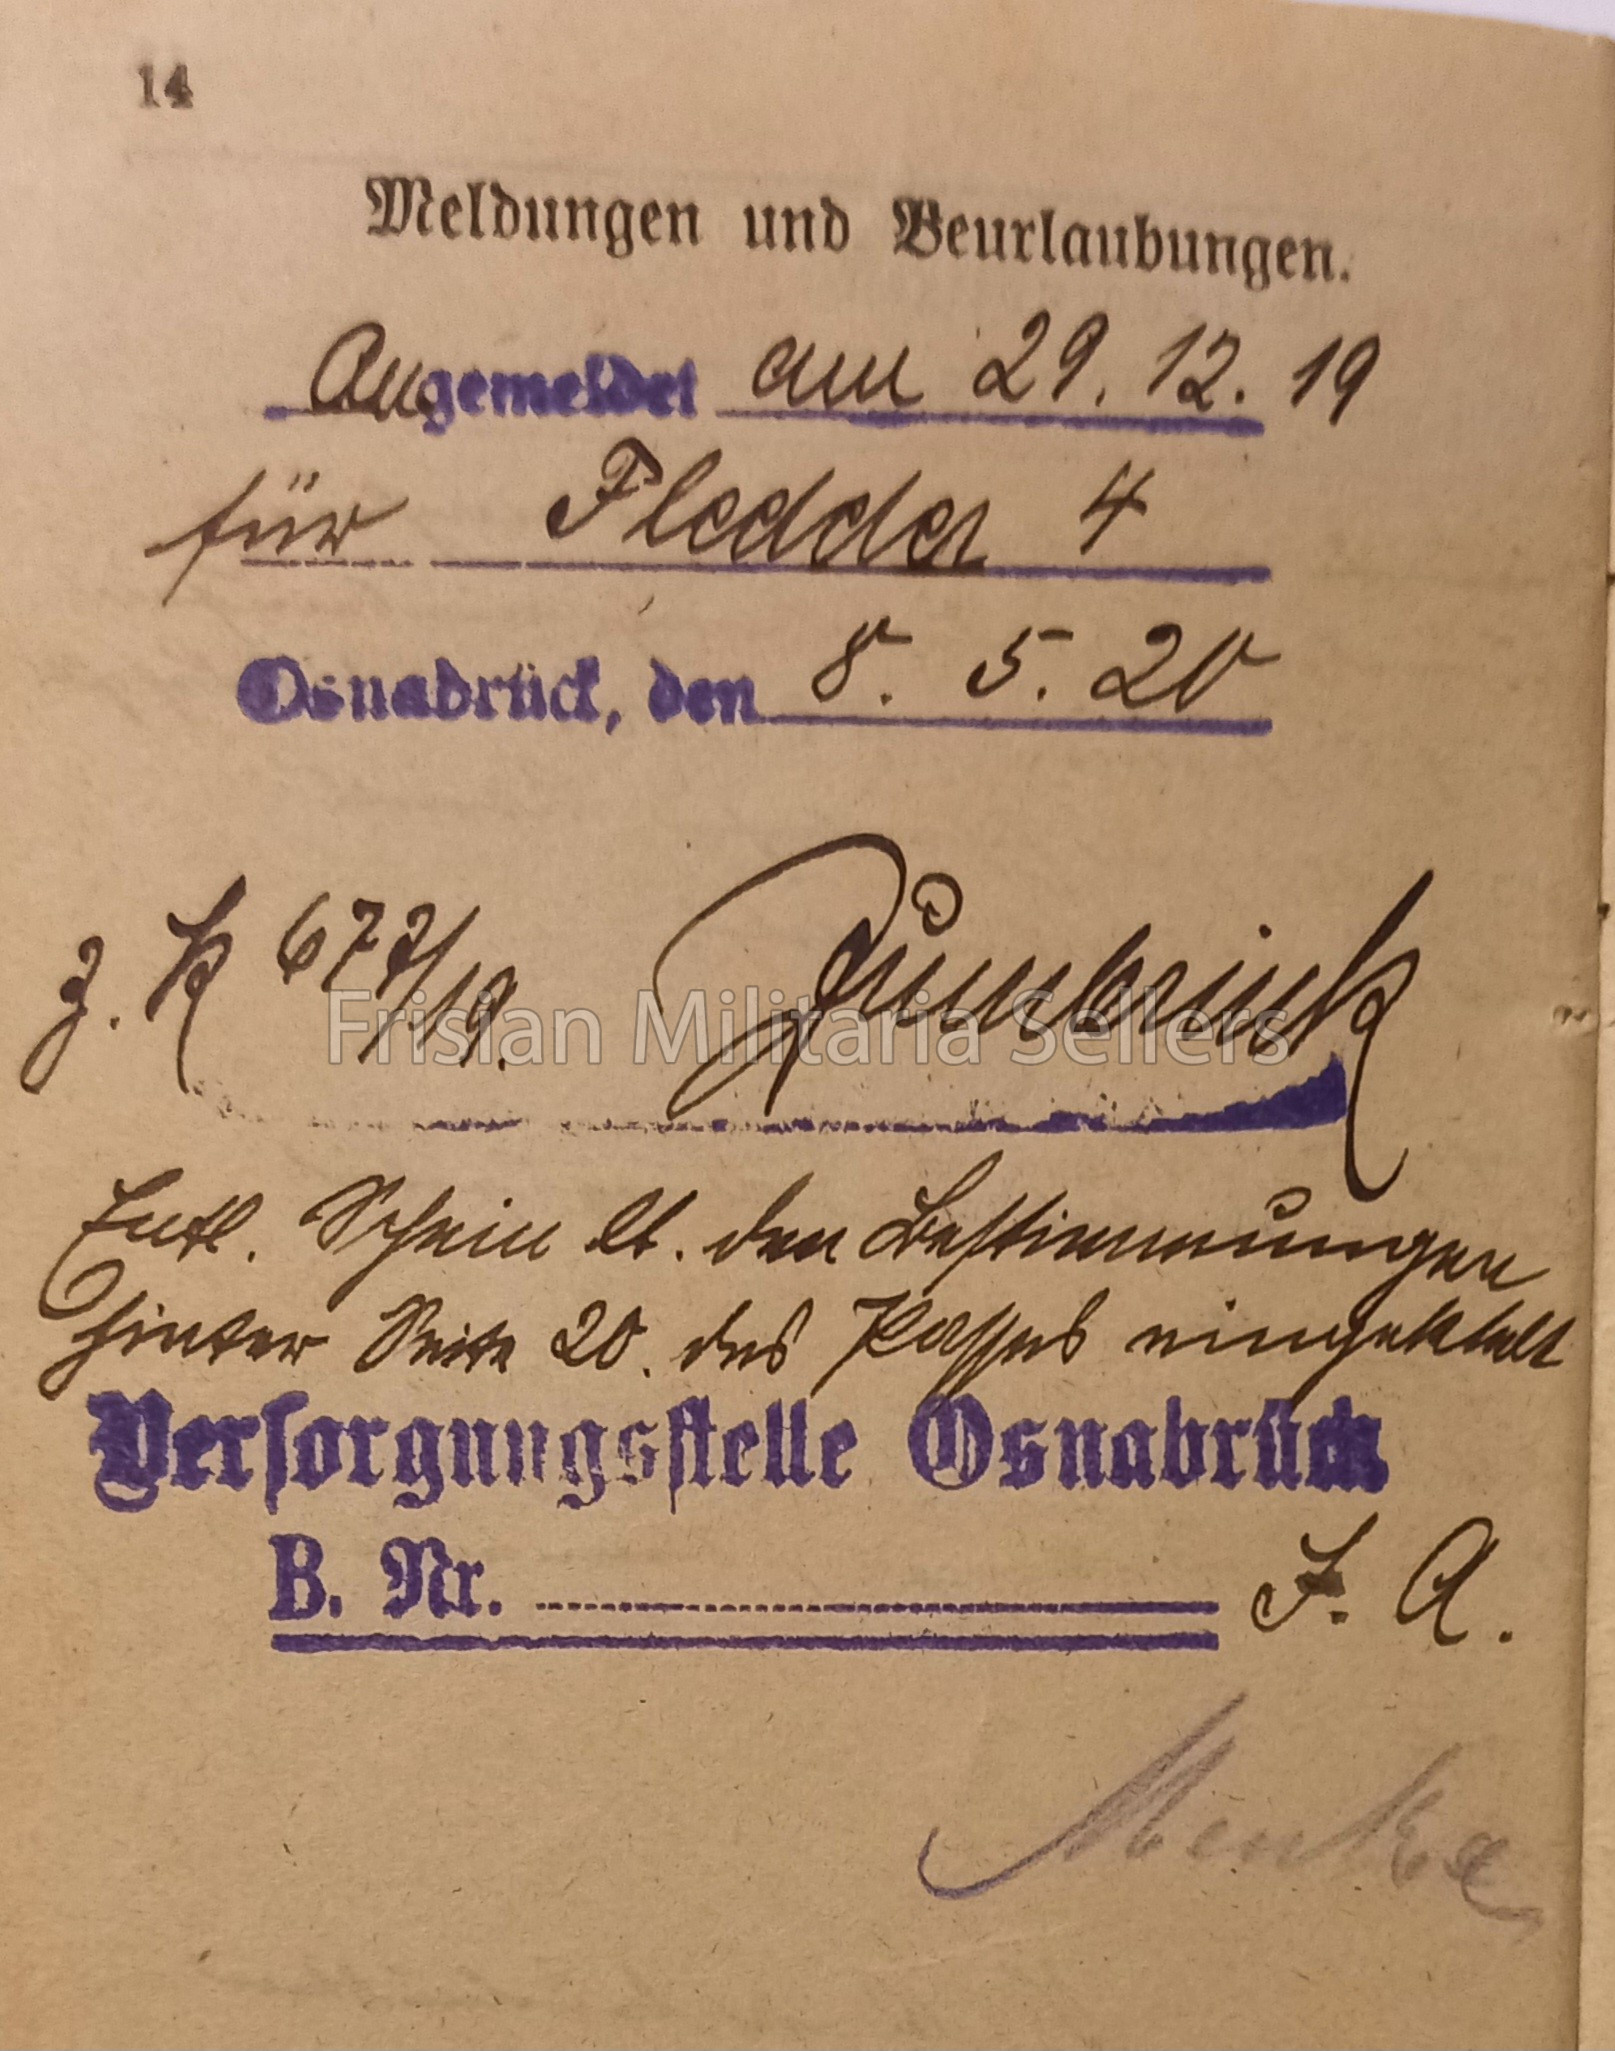 14
Meldungen und Beurlaubungen.
Angemeldet am 29. 12. 19
für Fledder 4
Osnabrück, den 8. 5. 20
z. K 677/19.
Frisian Militaria Sellers
Entl. Schein lt. den Bestimmungen
hinter Seite 20. des Passes eingeklebt
Versorgungsstelle Osnabrück
B. Nr. I. A.
Menke